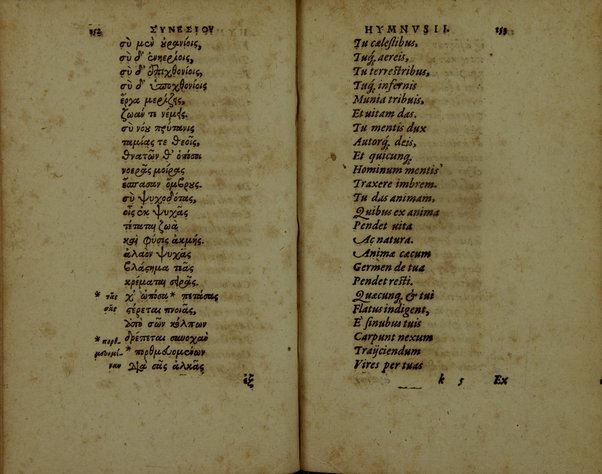 152 ΣΥΝΕΣΙΟΥ
σὺ μὲν οὐρανίοις,
σὺ δ' ἐναερίοις,
σὺ δ' ἐπιχθονίοις
σὺ δ' ὑποχθονίοις
ἔργα μερίζεις,
ζωάν τε νέμεις.
σὺ νόου πρύτανις
ταμίας τε θεοῖς,
θνατῶν θ' ὁπόσοι
νοερᾶς μοίρας
ἔσπασαν ὄμβρους.
σὺ ψυχοδότας,
οἷς ἐκ ψυχᾶς
τέταται ζωὰ
καὶ φύσις ἀκμής.
ἀλαὸν ψυχᾶς
βλάστημα τεᾶς
κρέμαται σειρᾶς.
χ' ὡπόσα * πετάσης
σέρεται πνοιᾶς,
ὑπὸ σῶν κόλπων
δρέπεται συνοχὰν
* πορθμευομέναν
διὰ σᾶς ἀλκᾶς
* τῆς
σῆς
* πορθ.
μευομέ-
ναν
ἐξ
HYMNVS II. 153
Tu cælestibus,
Tuq́; aereis,
Tu terrestribus,
Tuq́; infernis
Munia tribuis,
Et uitam das.
Tu mentis dux
Autorq́; deis,
Et quicunq;
Hominum mentis
Traxere imbrem.
Tu das animam,
Quibus ex anima
Pendet uita
Ac natura.
Anima cæcum
Germen de tua
Pendet resti.
Quæcunq; & tui
Flatus indigent,
E sinubus tuis
Carpunt nexum
Traijciendum
Vires per tuas
k 5 Ex